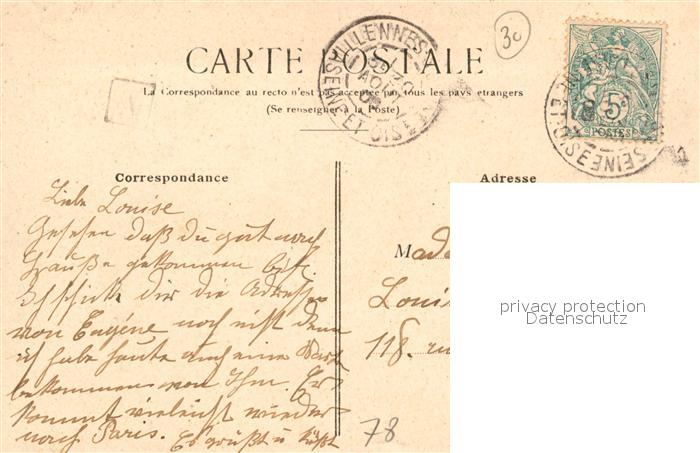 30
CARTE POSTALE
La Correspondance au recto n'est pas acceptée par tous les pays étrangers
(Se renseigner à la Poste)
VILLENNES
SEINE ET OISE
5
POSTES
SEINE
ET OISE
Correspondance
Adresse
Liebe Louise
Gesehen daß du gut nach
Hause gekommen bist.
Ich schicke dir die Adresse
von Eugéne noch nist denn
ich habe heute auch eine Karte
bekommen von Ihm. Er
kommt vieleicht wieder
nach Paris. Es grüßt u küßt
Mad
Loui
118. ru
78
privacy protection
Datenschutz